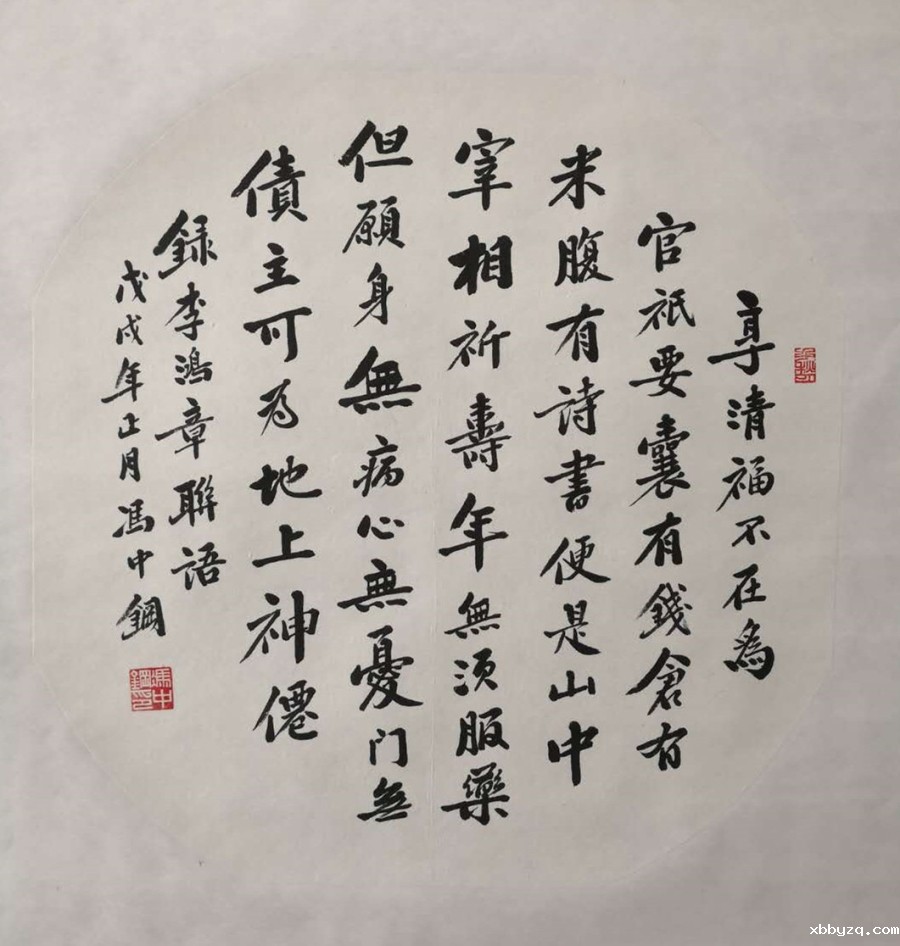 享清福不在為
官祇要囊有錢倉有
米腹有詩書便是山中
宰相祈壽年無須服藥
但願身無病心無憂门無
債主可为地上神僊
録李鴻章聯語
戊戌年正月馮中鋼
馮中鋼印
xbbyzq.com